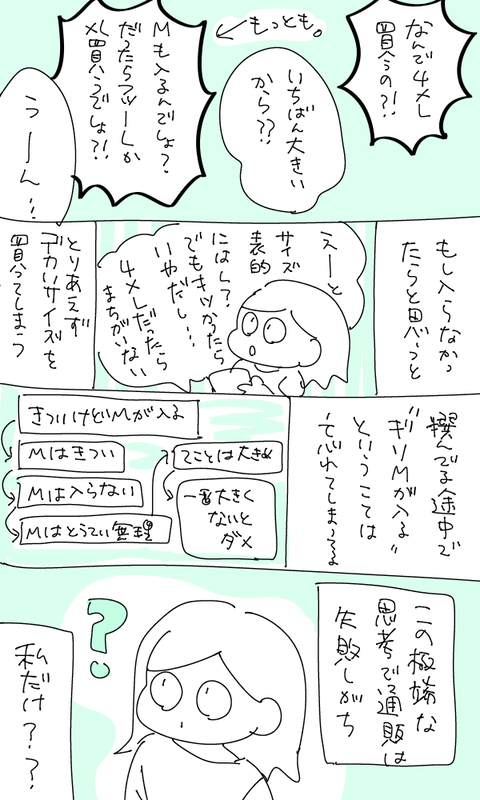 なんで4XL
買うの?!
もっとも。
いちばん大きい
から??
Mも入るんでしょ?
だったらフツーLか
XL買うでしょ?!
うーん…
もし入らなかっ
たらと思うと
えーと
サイズ
表的
にはL?
でもキツかったら
いやだし…
4XLだったら
まちがいない
とりあえず
デカいサイズを
買ってしまう
選んでる途中で
"ギリMが入る"
ということは
忘れてしまってる
きついけどMが入る
Mはきつい
Mは入らない
Mはとうてい無理
てことは大きめ
一番大きく
ないと
ダメ
この極端な
思考で通販は
失敗しがち
?
私だけ??